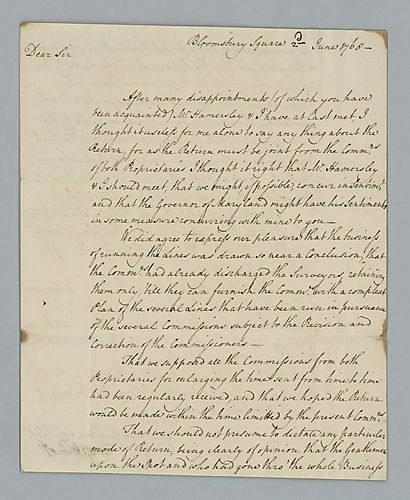 Bloomsbury Square 2d June 1768 —
Dear Sir
After many disappointments (of which you have
been acquainted) Mr Hamersley & I have at last met, I
thought it useless for me alone to say any thing about the
Return, for as the Return must be joint from the Commrs
of both Proprietaries I thought it right that Mr Hamersley
& I should meet, that we might, if possible, concur in Sentimts
and that the Governor of Maryland might have his Sentiments
in some measure concurring with mine to you —
We did agree to express our pleasure that the business
of running the Lines was drawn so near a Conclusion, that
the Commrs had already discharged the Surveyors, retaining
them only till they can furnish the Commrs with a compleat
Plan of the several Lines that have been run in pursuance
of the several Commissions subject to the Revision and
Correction of the Commissioners —
That we supposed all the Commissions from both
Proprietaries for enlarging the time sent from time to time
had been regularly received, and that we hoped the Return
would be made within the time limited by the present Commn
That we should not presume to dictate any particular
mode of Return, being clearly of opinion that the Gentlemen
upon the Spot and who had gone thro' the whole Business